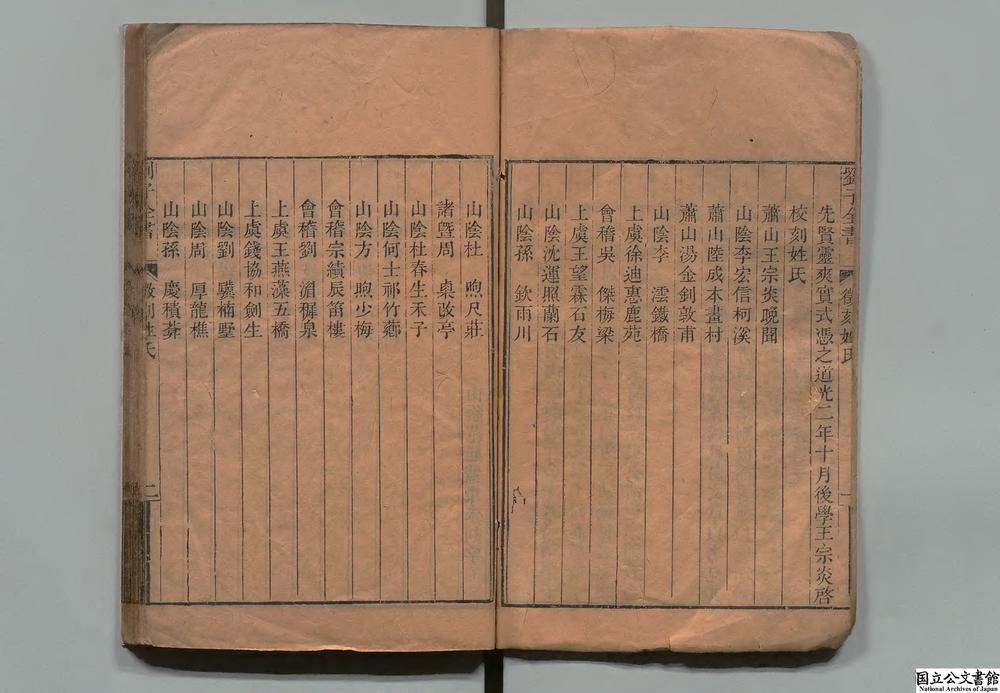 劉子全書 徵刻姓氏 一
先賢靈爽實式憑之道光二年十月後學王宗炎啓
校刻姓氏
蕭山王宗炎晚聞
山陰李宏信柯溪
蕭山陸成本畫村
蕭山湯金釗敦甫
山陰李 澐鐵橋
上虞徐迪惠鹿苑
會稽吳 傑梅梁
上虞王望霖石友
山陰沈運照蘭石
山陰孫 欽雨川
山陰杜 煦尺莊
諸暨周 㮚改亭
山陰杜春生禾子
山陰何士祁竹薌
山陰方 煦少梅
會稽宗績辰笛樓
會稽劉 湄穉泉
上虞王燕藻五橋
上虞錢協和劍生
山陰劉 驥楠墅
山陰周 厚龍樵
山陰孫 慶積莽
劉子全書 徵刻姓氏 二
国立公文書館
National Archives of Japan